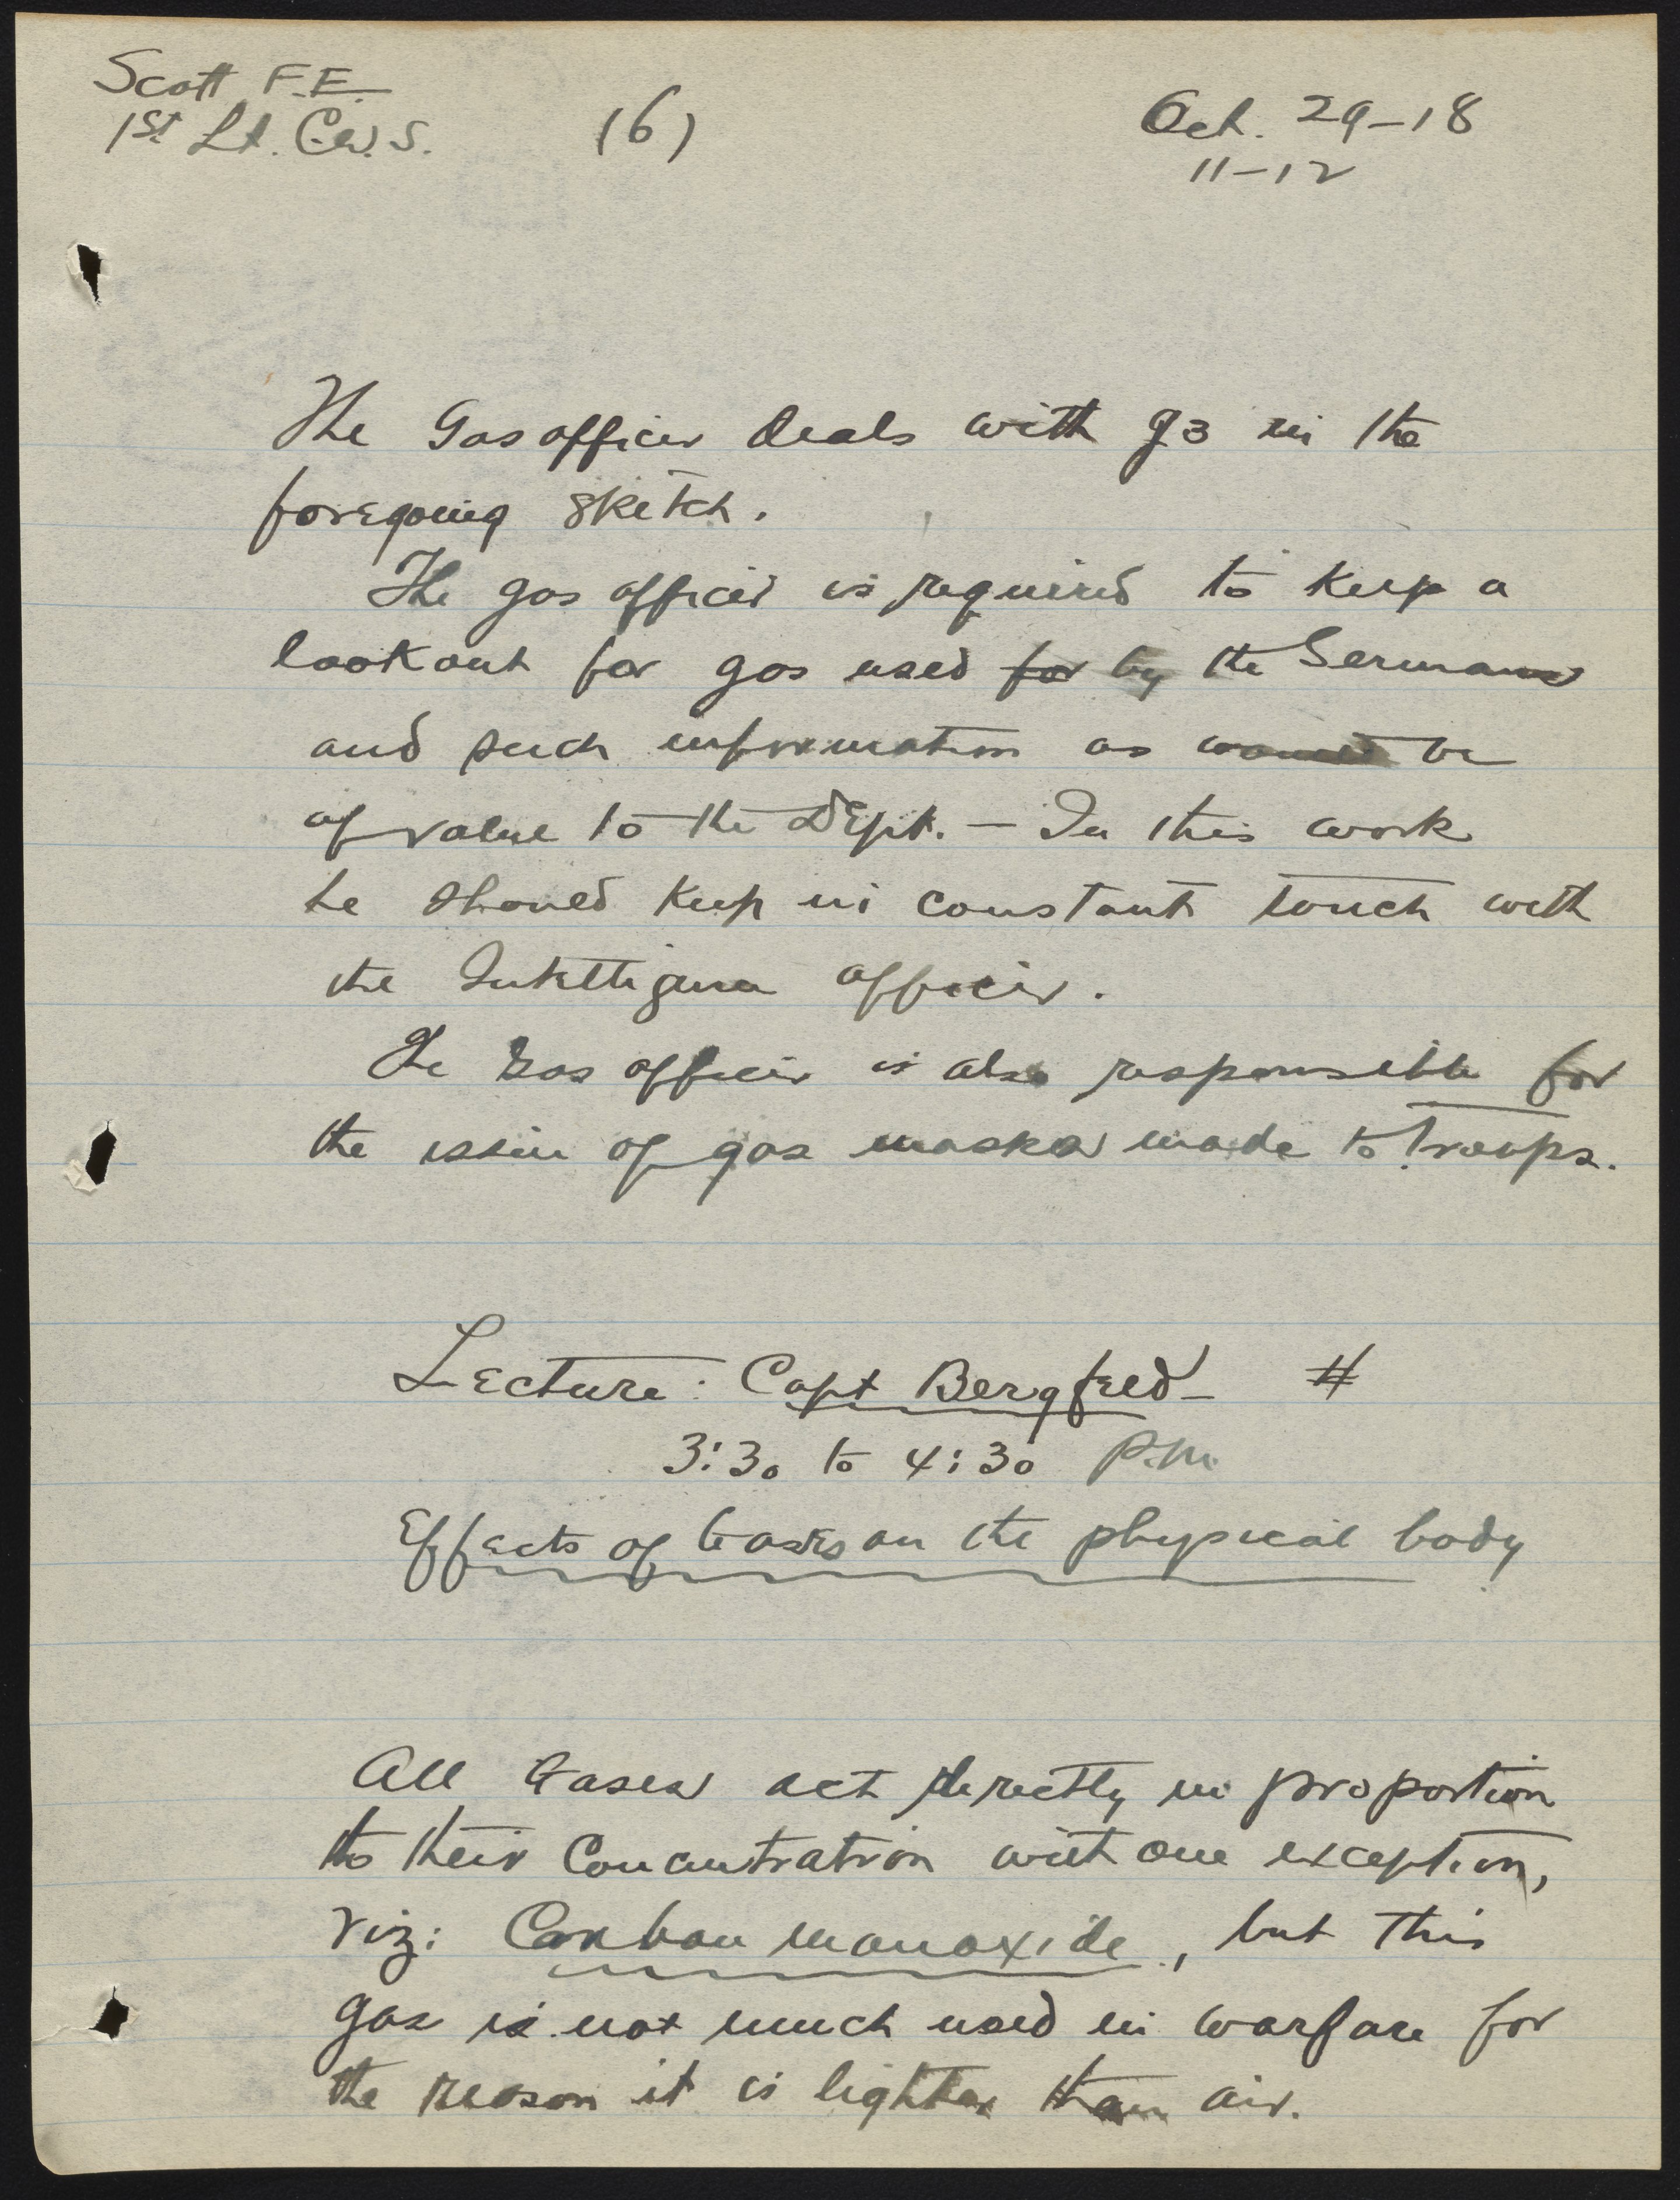 Scott F.E.
1st Lt. C.W.S.
(6)
Oct. 29-18
11-12
The Gas officer deals with G3 in the
foregoing sketch.
The gas officer is required to keep a
lookout for gas used for by the Germans
and such information as would be
of value to the Dept. — In this work
he should keep in constant touch with
the Intelligence officer.
The Gas officer is also responsible for
the issue of gas masks made to troops.
Lecture: Capt Bergfred- #
3:30 to 4:30 P.M.
Effects of Gases on the physical body
All Gases act directly in proportion
to their Concentration with one exception,
viz: Carbon monoxide, but this
gas is not much used in warfare for
the reason it is lighter than air.